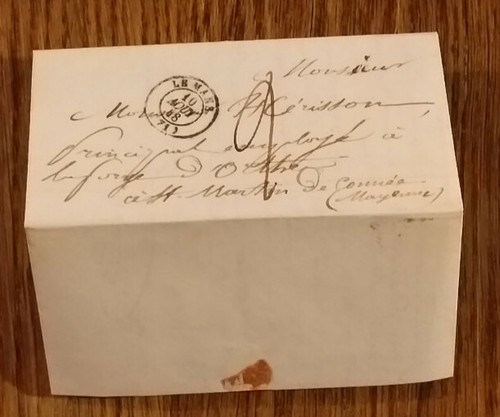 LE MANS
10
AOUT
48
(71)
Monsieur
Monsieur Hérisson,
Principal employé à
la forge d'Orthe
à St. Martin de Connée
(Mayenne)